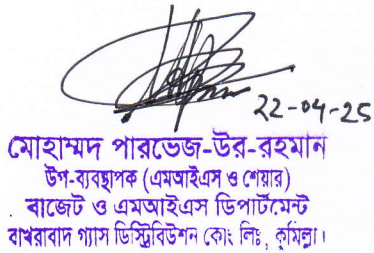 22-04-25
মোহাম্মদ পারভেজ-উর-রহমান
উপ-ব্যবস্থাপক (এমআইএস ও শেয়ার)
বাজেট ও এমআইএস ডিপার্টমেন্ট
বাখরাবাদ গ্যাস ডিস্ট্রিবিউশন কোং লিঃ, কুমিল্লা।